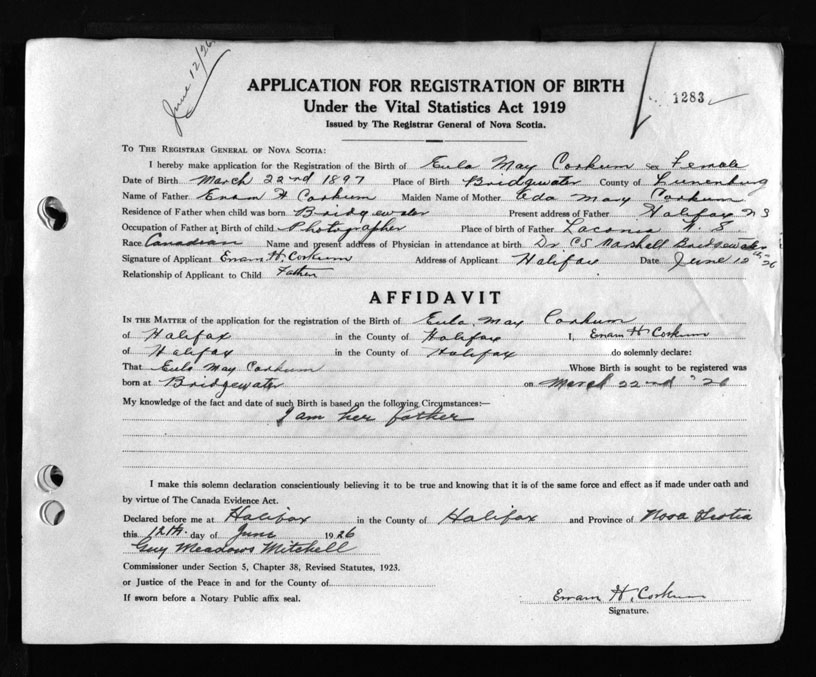 June 12/26
1283
APPLICATION FOR REGISTRATION OF BIRTH
Under the Vital Statistics Act 1919
Issued by The Registrar General of Nova Scotia.
TO THE REGISTRAR GENERAL OF NOVA SCOTIA:
I hereby make application for the Registration of the Birth of Eula May Corkum sex Female
Date of Birth March 22nd 1897 Place of Birth Bridgewater County of Lunenburg
Name of Father H Corkum Maiden Name of Mother Ada May Corkum
Residence of Father when child was born Bridgewater Present address of Father Halifax N S
Occupation of Father at Birth of child Photographer Place of birth of Father Laconia N. S.
Race Canadian Name and present address of Physician in attendance at birth Dr. C S. Marshall Bridgewater
Signature of Applicant H. Corkum Address of Applicant Halifax Date June 12th 26
Relationship of Applicant to Child Father
AFFIDAVIT
IN THE MATTER of the application for the registration of the Birth of Eula May Corkum
of Halifax in the County of Halifax I, H Corkum
of Halifax in the County of Halifax do solemnly declare:
That Eula May Corkum Whose Birth is sought to be registered was
born at Bridgewater on March 22nd '26
My knowledge of the fact and date of such Birth is based on the following Circumstances:—
I am her father
I make this solemn declaration conscientiously believing it to be true and knowing that it is of the same force and effect as if made under oath and
by virtue of The Canada Evidence Act.
Declared before me at Halifax in the County of Halifax and Province of Nova Scotia
this 12th day of June 1926
Guy Meadows Mitchell
Commissioner under Section 5, Chapter 38, Revised Statutes, 1923.
or Justice of the Peace in and for the County of
If sworn before a Notary Public affix seal.
H. Corkum
Signature.